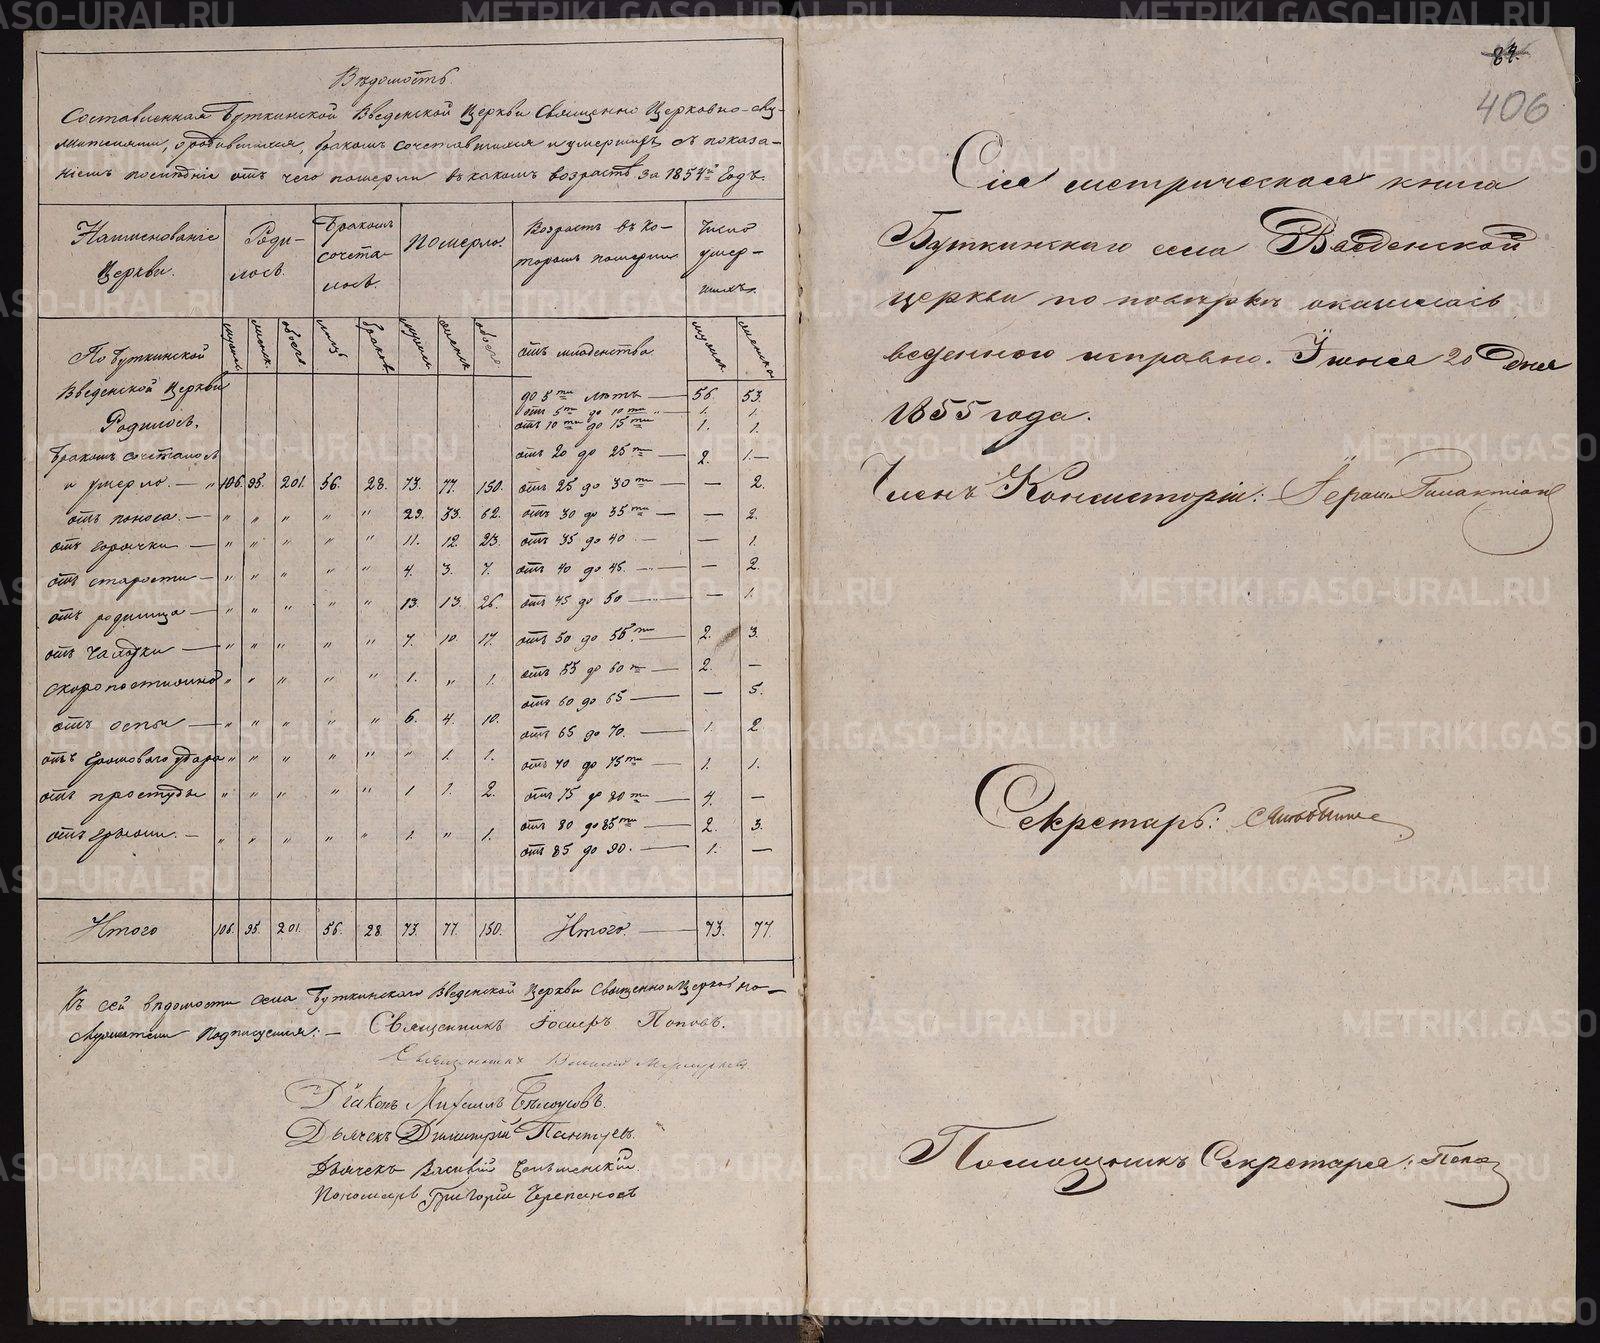 Вѣдомость
Составленная Буткинской Введенской Церкви Священно Церковно-слу-
жителями, о родившихся, бракомъ сочетавшихся и умершихъ съ показа-
ніемъ послѣдніе отъ чего померли въ какомъ возрастѣ за 1854й Годъ.
Наименованіе Церкви. Роди-лось. Бракомъ сочета-лось. Померло. Возрастъ въ ко-торомъ померли Число умер-шихъ.
мужск. женск. обоего. лицъ браковъ мужск. женск. обоего мужск. женска
По Буткинской отъ младенства
Введенской Церкви до 5ти лѣтъ — 56. 53.
отъ 5ти до 10ти „ — 1. 1.
Родилось, отъ 10ти до 15ти 1. 1.
Бракомъ сочеталось отъ 20 до 25ти — 2. 1.—
и умерло. — „ 106. 95. 201. 56. 28. 73. 77. 150. отъ 25 до 30ти — — 2.
отъ поноса. — „ „ „ „ „ 29. 33. 62. отъ 30 до 35ти — — 2.
отъ горячки — „ „ „ „ „ 11. 12. 23. отъ 35 до 40 — — 1.
отъ старости — „ „ „ „ „ 4. 3. 7. отъ 40 до 45. — — 2.
отъ родимца — „ „ „ „ „ 13. 13. 26. отъ 45 до 50 — — 1.
отъ чахотки — „ „ „ „ „ 7. 10. 17. отъ 50 до 55ти — 2. 3.
скоропостижно „ „ „ „ „ 1. „ 1. отъ 55 до 60ти — 2. —
отъ 60 до 65 — — 5.
отъ оспы — „ „ „ „ „ 6. 4. 10. отъ 65 до 70. — 1. 2
отъ громового удара „ „ „ „ „ „ 1. 1. отъ 70 до 75ти — 1. 1.
отъ простуды „ „ „ „ „ 1 1. 2. отъ 75 до 80ти — 4. —
отъ грыжи. — „ „ „ „ „ 1. „ 1. отъ 80 до 85ти — 2. 3.
отъ 85 до 90. — 1. —
Итого 106. 95. 201. 56. 28. 73. 77. 150. Итого. — 73. 77
Къ сей вѣдомости села Буткинскаго Введенской Церкви Священно и Церковно-
служители подписуемся: — Священникъ Іосифъ Поповъ.
Священникъ Василій
Діаконъ Михаилъ Бѣлоусовъ.
Дьячекъ Димитрій Пантуевъ.
Дьячекъ Василій
Пономарь Григорій Черепановъ
84.
406
Сія метрическая книга
Буткинскаго села Введенской
церкви по повѣркѣ оказалась
веденною исправно. Іюня 20 дня
1855 года.
Членъ Консисторіи: Іером. Галактіонъ
Секретарь:
Помощникъ Секретаря: Попо
METRIKI.GASO-URAL.RU